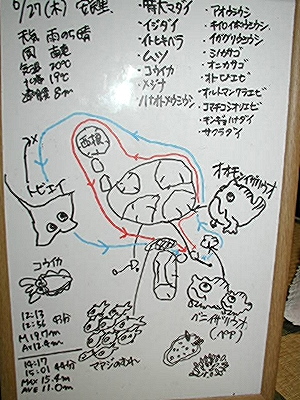 6/27(木) 安良里
天気 雨のち晴
風 南東
気温
水温 19℃
透明度 8m
・特大マダイ
・イシダイ
・イトヒキハゼ
・ムツ
・コウイカ
・メジナ
・ハナオトメウミウシ
・アオウミウシ
・キイロイボウミウシ
・イガグリウミウシ
・ミノカサゴ
・オニカサゴ
・オトヒメエビ
・オルトマンワラエビ
・コマチコシオリエビ
・キンギョハナダイ
・サクラダイ
西根
トビエイ
オオモンイザリウオ
コウイカ
ベニイザリウオ
(ペア)
マアジのむれ
12:13
12:56 43分
M 19.7m
AV 12.4m
14:17
15:01 44分
MAX 15.4m
AVE 11.0m